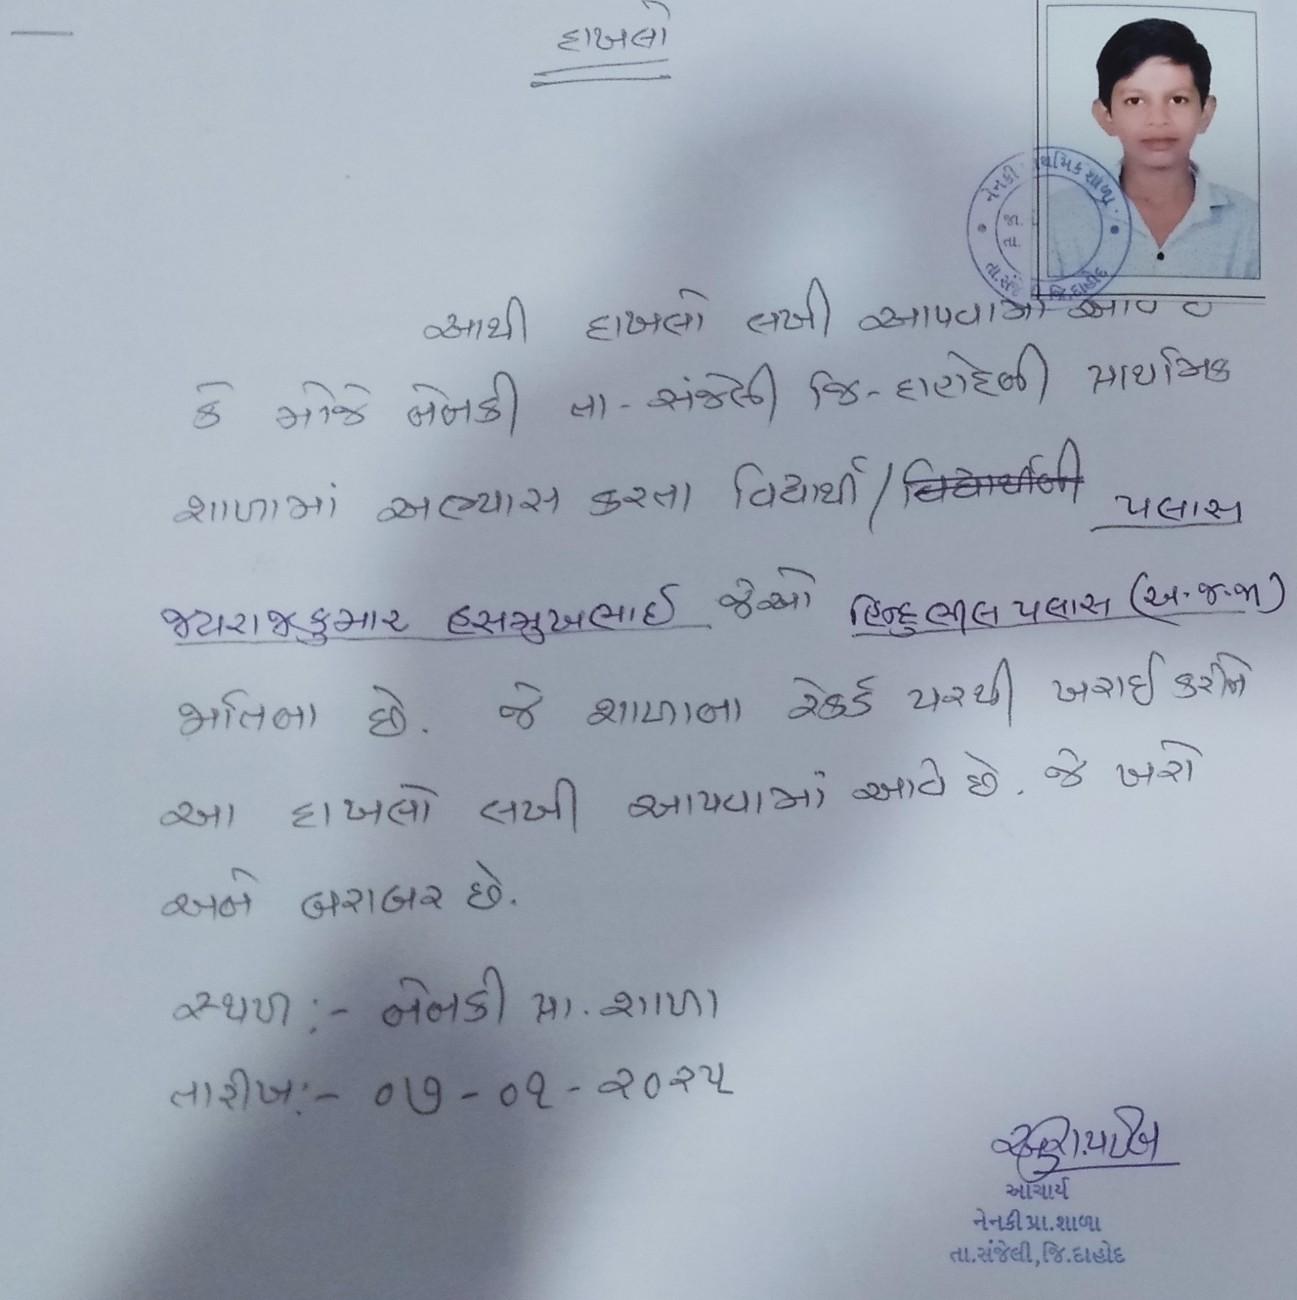 દાખલો
નેનકી પ્રાથમિક શાળા
જા.
તા.
તા.સંજે જિ.દાહોદ
આથી દાખલો લખી આપવામાં આવે છે
કે મોજે નેનકી તા - સંજેલી જિ - દાહોદની પ્રાથમિક
શાળામાં અભ્યાસ કરતા વિદ્યાર્થી / વિદ્યાર્થીની પલાસ
જયરાજકુમાર હસમુખભાઈ જેઓ હિન્દુ ભીલ પલાસ (અ.જ.જા)
જાતિના છે. જે શાળાના રેકર્ડ પરથી ખરાઈ કરીને
આ દાખલો લખી આપવામાં આવે છે. જે ખરો
અને બરાબર છે.
સ્થળ :- નેનકી પ્રા. શાળા
તારીખ :- ૦૭ - ૦૧ - ૨૦૨૫
આચાર્ય
નેનકી પ્રા.શાળા
તા.સંજેલી,જિ.દાહોદ